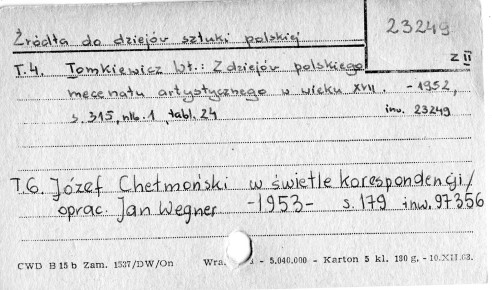 Źródła do dziejów sztuki polskiej
23249
Z II
T.4. Tomkiewicz Wł.: Z dziejów polskiego
mecenatu artystycznego w wieku XVII. - 1952,
s. 315, nlb. 1, tabl. 24 inw. 23249
T.6. Józef Chełmoński w świetle korespondencji/
oprac. Jan Wegner -1953- s. 179 inw. 97356
CWD B 15 b Zam. 1537/DW/On - 5.040.000 - Karton 5 kl. 180 g. - 10.XII.63.